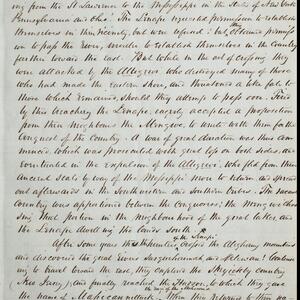 ing from the St Lawrence to the Mississippi in the States of New York
Pennsylvania and Ohio. The Linape requested permission to establish
themselves in this vicinity, but were refused: but obtained permis
sion to pass the River, and to establish themselves in the Country
farther toward the east. But while in the act of crossing they
were attacked by the Allegewi who destroyed many of those
who had made the Eastern Shore, and threatened a like fate to
those which remained, should they attempt to pass over. Fired
by this treachery the Linape, eagerly accepted a proposition
from their neighbours the Mengwe, to unite with them for the
Conquest of the Country. A war of great duration was thus com
menced, which was prosecuted with great loss on both sides, and
terminated in the expulsion of the Allegewi, who fled from their
Ancient Seats by way of the Mississippi never to return
afterwards in the Southwestern and Southern
Country was apportioned between the Conquerors; the Mengwe choo
sing that portion in the neighbourhood of the great lakes and
the Linapi dwelling the lands South.
After some years the Linapi hunters crossed the Alleghany mountains
and discovered the great rivers Susquehannah and Delawar! Continu
ing to travel toward the east, they explored the Sheyickby country
(New Jersey) and finally reached the Hudson, to which they gave
the name of Mahicannittuck. Upon their return to their na